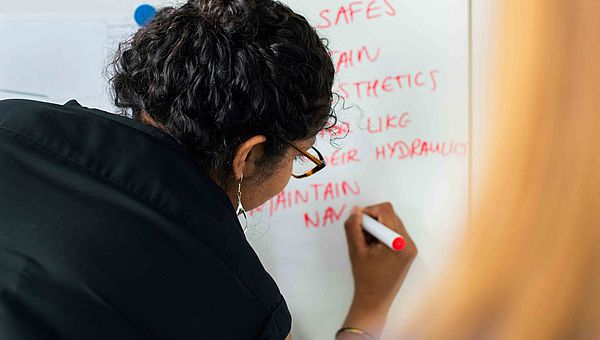 SAFES
AESTHETICS
LIKE
HYDRAULICS
MAINTAIN
NAV